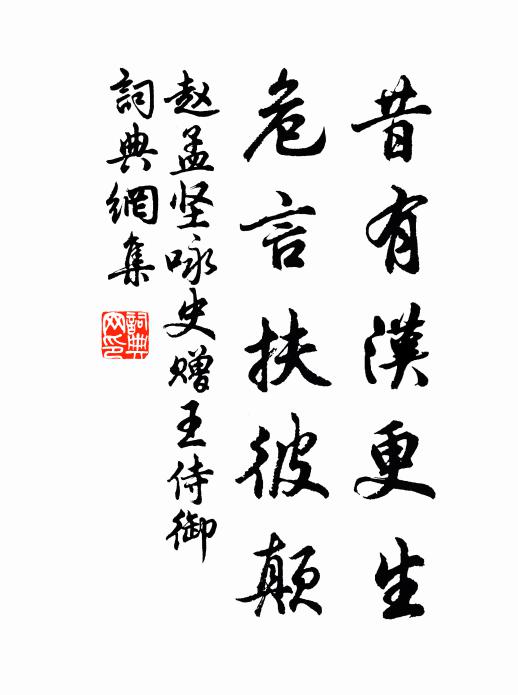 昔有漢更生
危言扶彼颠
赵孟坚咏史赠王侍御
詞典網集
詞典网印